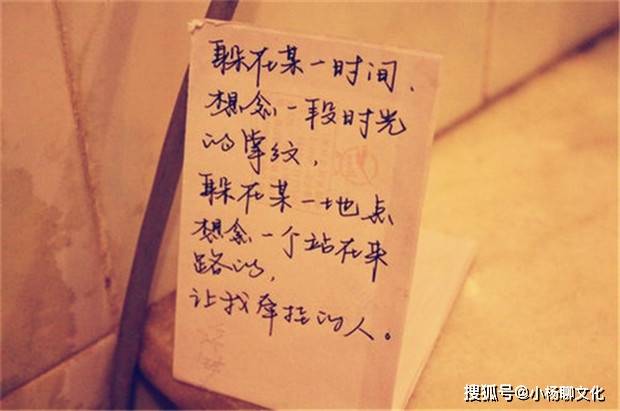 躲在某一时间，
想念一段时光
的掌纹，
躲在某一地点
想念一个站在来
路的，
让我牵挂的人。
搜狐号@小杨聊文化